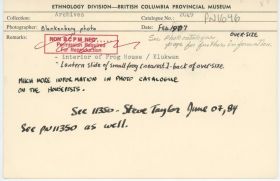 ETHNOLOGY DIVISION—BRITISH COLUMBIA PROVINCIAL MUSEUM
Location: Archives
Catalogue No. 2069 PN11696
Photographer: Blankenburg photo Date:
Remarks: See photo catalogue page for further information OVER-SIZE
NON BCPM NEG
Permission Required
For Reproduction
- Interior of Frog House / Klukwan
- Lantern slide of small frog (nearest) - back of oversize
MUCH MORE INFORMATION IN PHOTO CATALOGUE
ON THE HOUSEPOSTS.
See 11350 - Steve Taylor June 07, 84
See PN11350 as well.